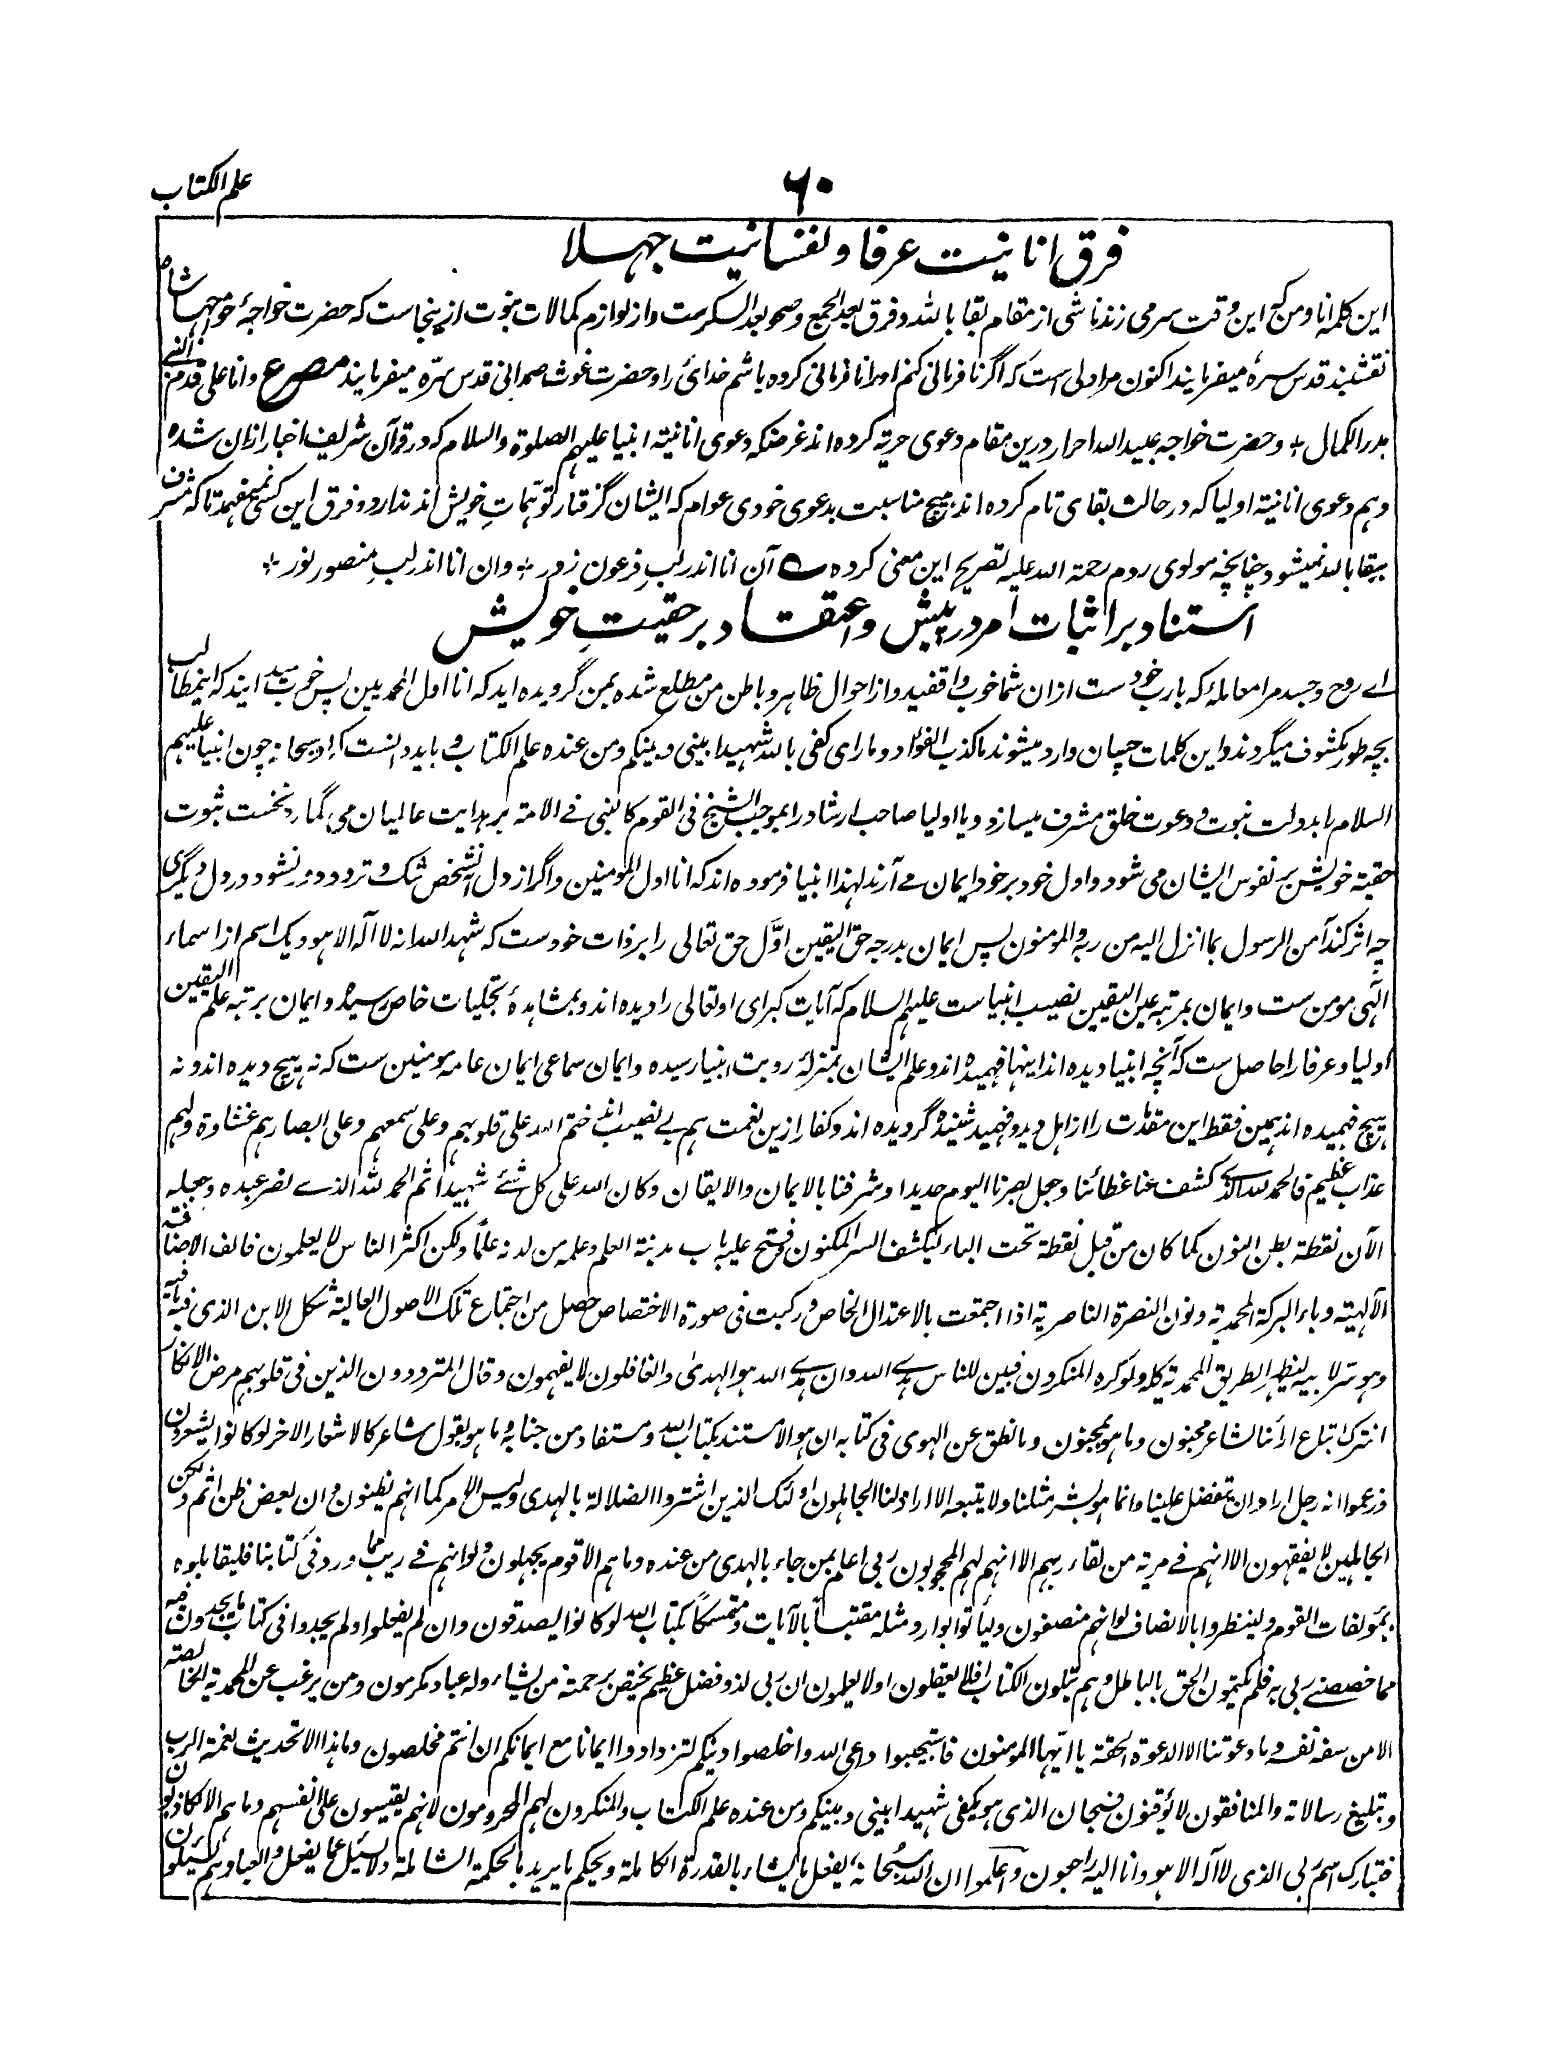 علم الکتاب
۶۰
فرق انانیت عرفا و نفسانیت جهلا
این کلمه انا و من کج این وقت سرمی زند ناشی از مقام بقا بالله و فرق بعد الجمع و صحو بعد السکرست و از لوازم کمالات نبوت ازینجاست که حضرت خواجهٔ خواجها شاه
نقشبند قدس سرهٔ میفرمایند اکنون مرا دلی است که اگر نافرمانی کنم او را نافرمانی کرده باشم خدائ را و حضرت غوث صمدانی قدس سرّه میفرمایند مصرع وانا علی قدم النبی
بدر الکمال ؞ و حضرت خواجه عبید الله احرار درین مقام دعوی حریه کرده اند غرضکه دعوی انانیته انبیا علیهم الصلوة والسلام که در قرآن شریف اخبار ازان شده
و هم دعوی انانیته اولیا که در حالت بقای تام کرده اند هیچ مناسبت بدعوی خودی عوام که ایشان گرفتار توهّمات خویش اند ندارد و فرق این کسی نمیفهمد تا که مشرف
ببقا بالله نمیشود چنانچه مولوی روم رحمة الله علیه تصریح این معنی کرده ؎ آن انا اندر لب فرعون زور ؞ وان انا اندر لبِ منصور نور ؞
استناد بر اثبات امر در پیش و اعتقاد بر حقیت خویش
اے روح و جسد مرا معاملهٔ که بارب خودست ازان شما خوب واقفید و از احوال ظاهر و باطن من مطلع شده بمن گرویده اید که انا اول المحمدیین پس خوب میدانید که اینمطالب
بچه طور مکشوف میگردند و این کلمات چسپان وارد میشوند ما کذب الفؤاد ما رای کفی بالله شهیدا بینی و بینکم ومن عنده علم الکتاب و باید دانست که او سبحانه چون انبیا علیهم
السلام را بدولت نبوت و دعوت خلق مشرف میسازد و یا اولیا صاحب ارشاد را بموجب الشیخ فی القوم کالنبی فے الامة بر هدایت عالمیان می گمارد نخست ثبوت
حقیة خویش بر نفوس ایشان می شود و اول خود بر خود ایمان مے آرند لهذا انبیا فرموده اند که انا اول المؤمنین و اگر از دل آنشخص شک و تردد دور نشود در دل دیگری
چه اثر کند آمن الرسول بما انزل الیه من ربه والمومنون پس ایمان بدرجه حق الیقین اوّل حق تعالی را بر ذات خودست که شهد الله انه لا اله الا هو و یک اسم از اسماء
الٰهی مومن ست و ایمان بمرتبه عین الیقین نصیب انبیاست علیهم السلام که آیات کبرای او تعالی را دیده اند و بمشاهدهٔ تجلیات خاص رسیده و ایمان بمرتبه علم الیقین
اولیا و عرفا را حاصل ست که آنچه انبیا دیده اند اینها فهمیده اند و علم ایشان بمنزلهٔ رویت انبیا رسیده و ایمان سماعی ایمان عامه مومنین ست که نه هیچ دیده اند و نه
هیچ فهمیده اند همین فقط این مقدمات را از اهل دید و فهمید شنیده گردیده اند و کفار ازین نعمت هم بے نصیب اند ختم الله علی قلوبهم وعلی سمعهم وعلی ابصارهم غشاوة ولهم
عذاب عظیم فالحمد لله الذے کشف عنا غطائنا وجعل بصرنا الیوم حدیدا وشرفنا بالایمان والایقان وکان الله علی کل شئے شهیدا ثم الحمد لله الذے نصر عبده وجعله
الآن نقطة بطن النون کما کان من قبل نقطة تحت الباء لیکشف السر المکنون وفتح علیه باب مدینة العلم وعلمه من لدنه علمًا ولکن اکثر الناس لا یعلمون فالف الاضافة
الآلهیة وباء البرکة المحمدیة ونون النصرة الناصریة اذا اجتمعت بالاعتدال الخاص ورکبت فی صورة الاختصاص حصل من اجتماع تلک الاصول العالیة شکل الابن الذی فیه
وهو سرّ لابیه لیظهر الطریق المحمدیة کله ولو کره المنکرون فبین للناس هدے الله وان هدے الله هو الهدیٰ والغافلون لا یفهمون وقال المترددون الذین فی قلوبهم مرض الانکار
انترک اتباع ارائنا لشاعر مجنون وما هو بمجنون وما نطق عن الهوی فی کتابه ان هو الا مستند بکتاب الله ومستفاد من جنابه وما هو بقول شاعر کالاشعار الاخر لو کانوا یشعرون
فزعموا انه رجل اراد ان یتفضل علینا وانما هو بشر مثلنا ولا یتبعه الا اراذلنا الجاهلون اولئک الذین اشتروا الضلالة بالهدی ولیس الامر کما انهم یظنون وان بعض الظن اثم ولکن
الجاهلین لا یفقهون الا انهم فے مریة من لقاء ربهم الا انهم لهم المحجوبون ربی اعلم بمن جاء بالهدی من عنده وما هم الا قوم یجهلون ولو انهم فے ریب مما ورد فی کتابنا فلیقابلوه
بمؤلفات القوم ولینظروا بالانصاف لو انهم منصفون ولیأتوا بوارد مثله مقتبساً بالآیات ومتمسکاً بکتاب الله لو کانوا یصدقون وان لم یفعلوا ولم یجدوا فی کتاب ما یجدون فیه
مما خصصنے ربی به فلم یکتمون الحق بالباطل وهم یتلون الکتاب افلا یعقلون اولا یعلمون ان ربی لذو فضل عظیم یختص برحمته من یشاء وله عباد مکرمون ومن یرغب عن المحمدیة الخالصة
الا من سفه نفسه وما دعوتنا الا الدعوة الحقة یا ایها المومنون فاستجیبوا داعی الله واخلصوا دینکم لتزدادوا ایمانا مع ایمانکم ان انتم مخلصون وما هذا الا تحدیث لنعمة الرب
وتبلیغ رسالاته والمنافقون لا یوقنون فسبحان الذی هو یکفی شهیدا بینی وبینکم ومن عنده علم الکتاب والمنکرون لهم المحرومون لانهم یقیسون علی انفسهم وما هم الا کاذبون
فتبارک اسم ربی الذی لا اله الا هو وانا الیه راجعون واعلموا ان الله سبحانه یفعل ما یشاء بالقدرة الکاملة ویحکم ما یرید بالحکمة الشاملة ولا یسئل عما یفعل والعباد هم یسئلون